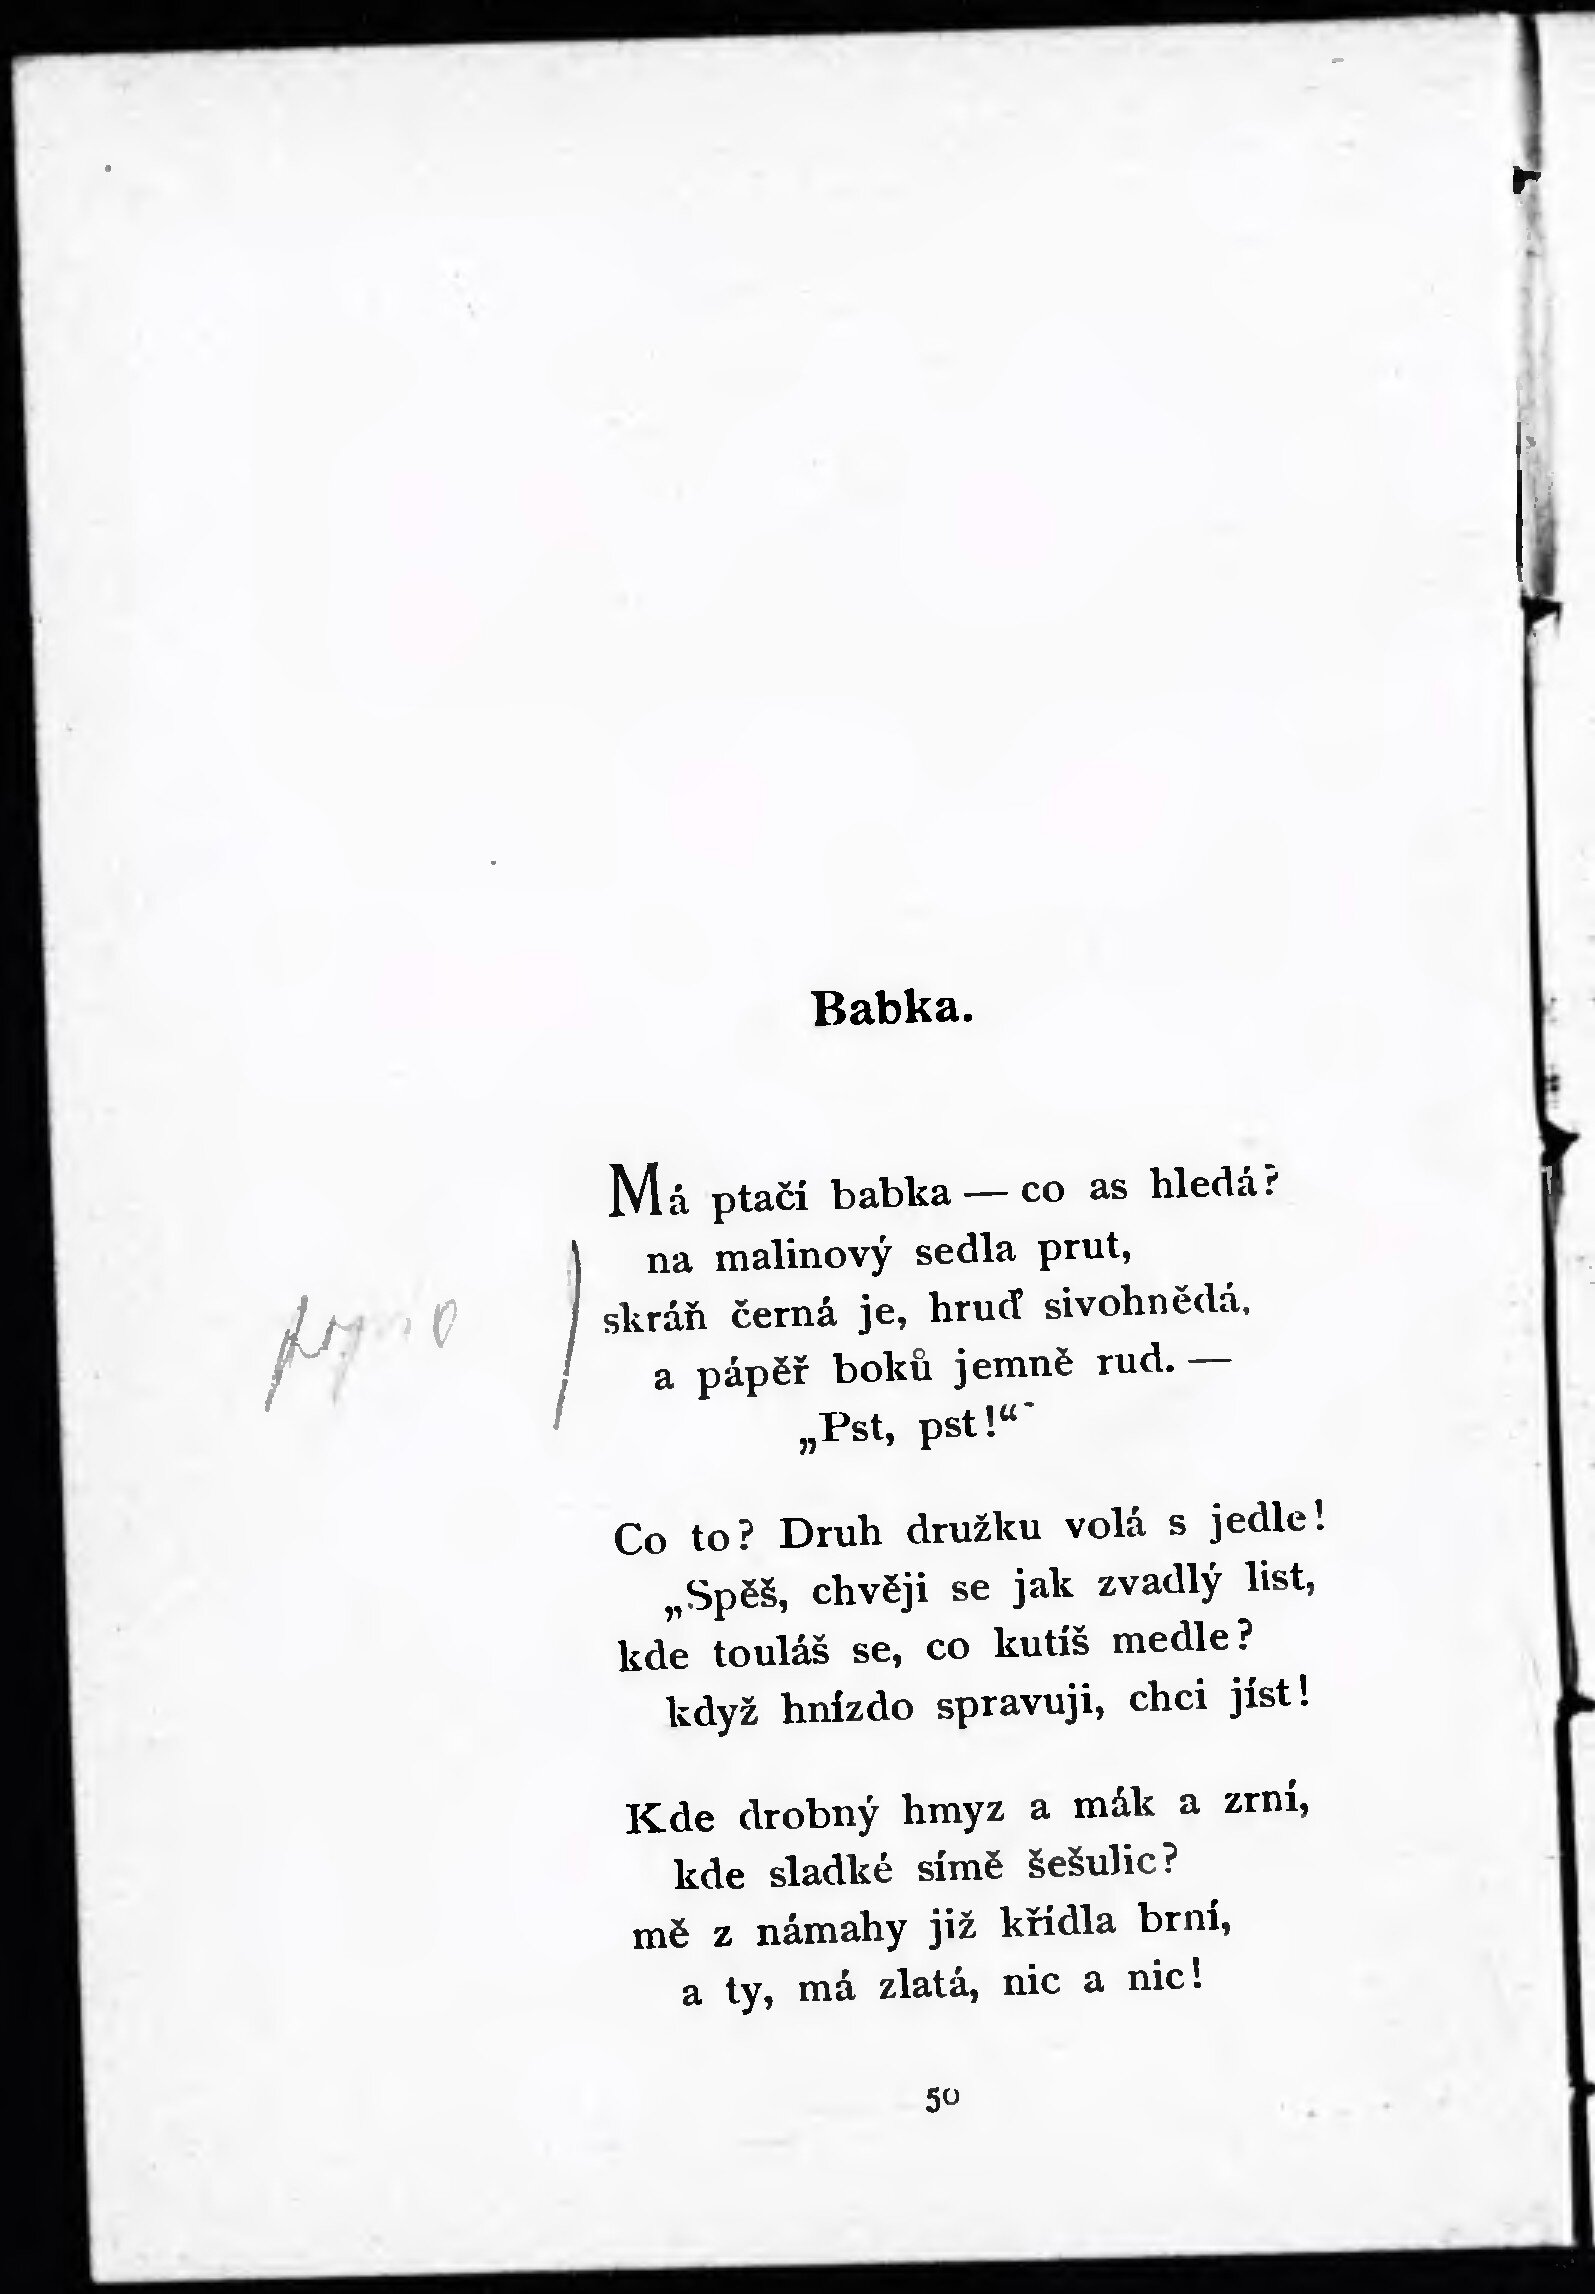 Babka.
Má ptačí babka — co as hledá?
na malinový sedla prut,
skráň černá je, hruď sivohnědá,
a pápěř boků jemně rud. —
„Pst, pst!“
Co to? Druh družku volá s jedle!
„Spěš, chvěji se jak zvadlý list,
kde touláš se, co kutíš medle?
když hnízdo spravuji, chci jíst!
Kde drobný hmyz a mák a zrní,
kde sladké símě šešulic?
mě z námahy již křídla brní,
a ty, má zlatá, nic a nic!
50